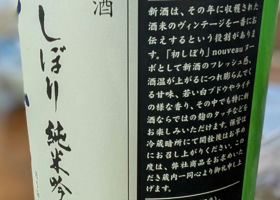 酒
しぼり純米吟
新酒は、その年に収穫された
酒米のヴィンテージを一番にお
伝えするという役割がありま
す。「初しぼり」nouveauヌー
ボとして新酒のフレッシュ感、
酒温が上がるにつれ膨らんでく
る甘味、若い白ブドウやライチ
の様な香り、その中でも特に新
酒ならではの麹のタッチなどを
お楽しみいただけます。保管は
冷蔵暗所にて開栓後はお早め
にお召し上がりください。この
度は、弊社商品をお求めいた
だき蔵内一同心より御礼申し上
げます。